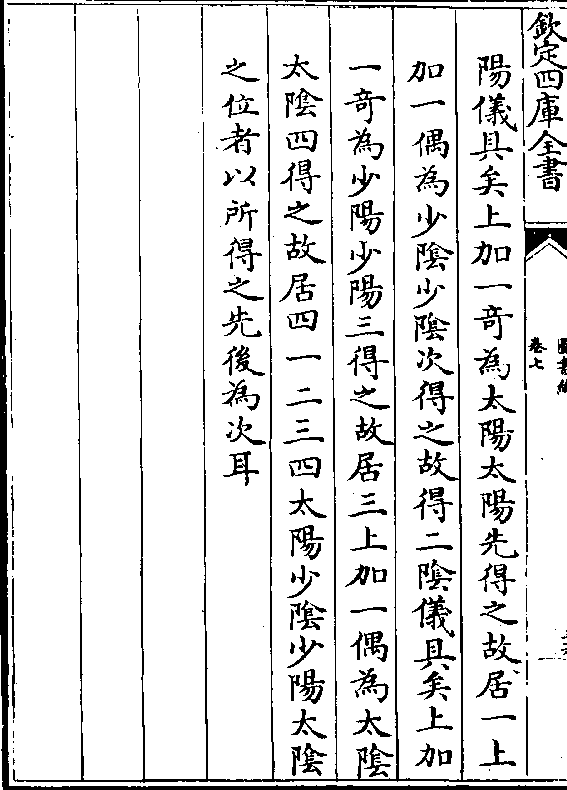 欽定四庫全書
圖書編
卷七
陽儀具矣上加一奇為太陽太陽先得之故居一上
加一偶為少陰少陰次得之故得二陰儀具矣上加
一奇為少陽少陽三得之故居三上加一偶為太陰
太陰四得之故居四一二三四太陽少陰少陽太陰
之位者以所得之先後為次耳